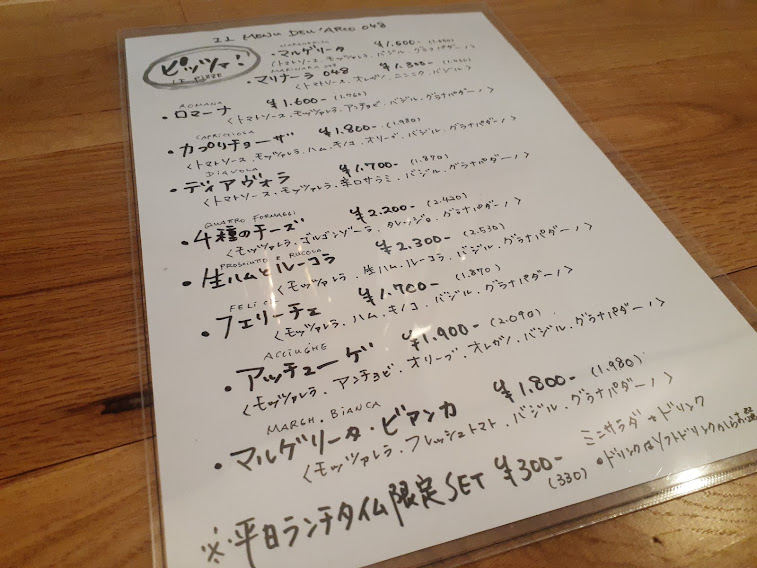 IL MENU DELL'ARCO 048
ピッツァ!
LE PIZZE
MARGHERITA
・マルゲリータ ¥1.500-
〈トマトソース、モッツァレラ、バジル、グラナパダーノ〉
MARINARA 048
・マリナーラ 048 ¥1.300-
〈トマトソース、オレガノ、ニンニク、バジル〉
ROMANA
・ロマーナ ¥1.600-(1.760)
〈トマトソース、モッツァレラ、アンチョビ、バジル、グラナパダーノ〉
CAPRICCIOSA
・カプリチョーザ ¥1.800-(1.980)
〈トマトソース、モッツァレラ、ハム、キノコ、オリーブ、バジル、グラナパダーノ〉
DIAVOLA
・ディアヴォラ ¥1.700-(1.870)
〈トマトソース、モッツァレラ、辛口サラミ、バジル、グラナパダーノ〉
QUATRO FORMAGGI
・4種のチーズ ¥2.200-(2.420)
〈モッツァレラ、ゴルゴンゾーラ、タレッジョ、グラナパダーノ〉
PROSCIUTTO E RUCOLA
・生ハムとルーコラ ¥2.300-(2.530)
〈モッツァレラ、生ハム、ルーコラ、バジル、グラナパダーノ〉
FELICE
・フェリーチェ ¥1.700-(1.870)
〈モッツァレラ、ハム、キノコ、バジル、グラナパダーノ〉
ACCIUGHE
・アッチューゲ ¥1.900-(2.090)
〈モッツァレラ、アンチョビ、オリーブ、オレガノ、バジル、グラナパダーノ〉
MARGH.BIANCA
・マルゲリータ・ビアンカ ¥1.800-(1.980)
〈モッツァレラ、フレッシュトマト、バジル、グラナパダーノ〉
※平日ランチタイム限定SET ¥300-(330)
ミニサラダ+ドリンク
・ドリンクはソフトドリンクからお選